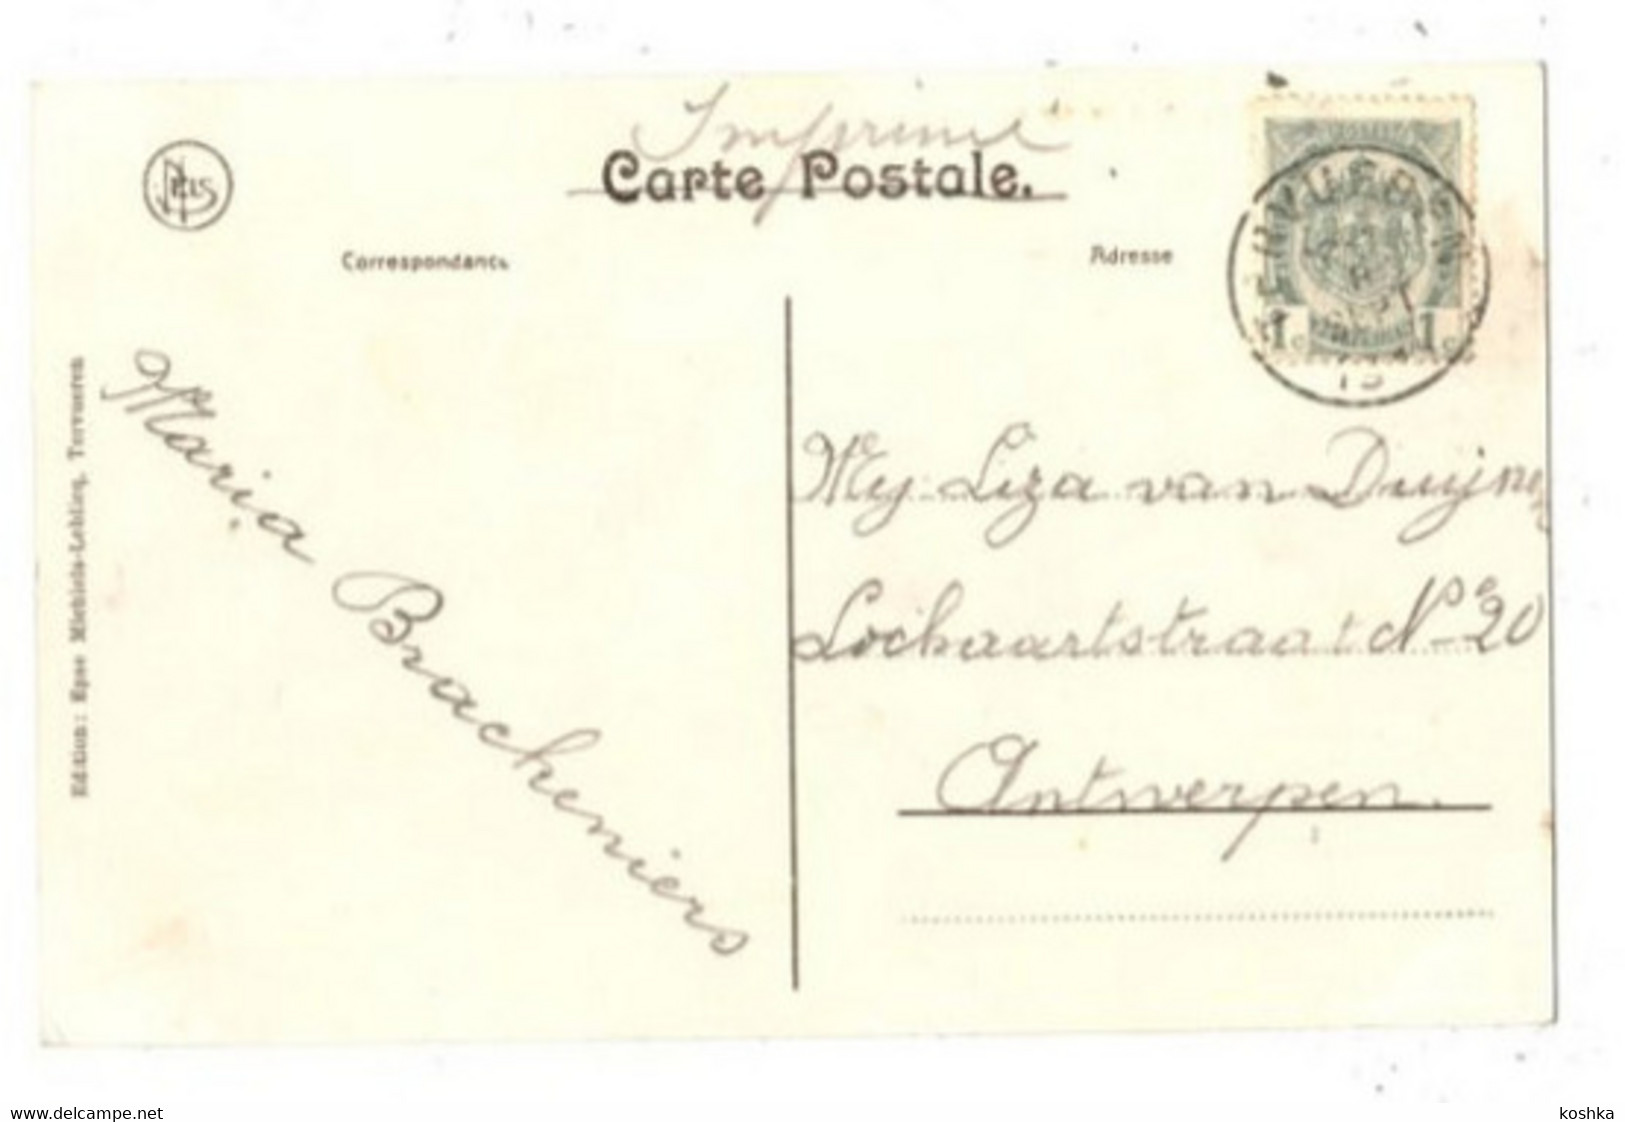 Imprimé
Carte Postale.
NELS
Correspondance
Adresse
1c 1c
Edition: Epse Michiels-Leblicq, Tervueren
Maria Brackeniers
Mej. Liza van Duijn
Lockaartstraat No 20
Antwerpen.
www.delcampe.net
koshka